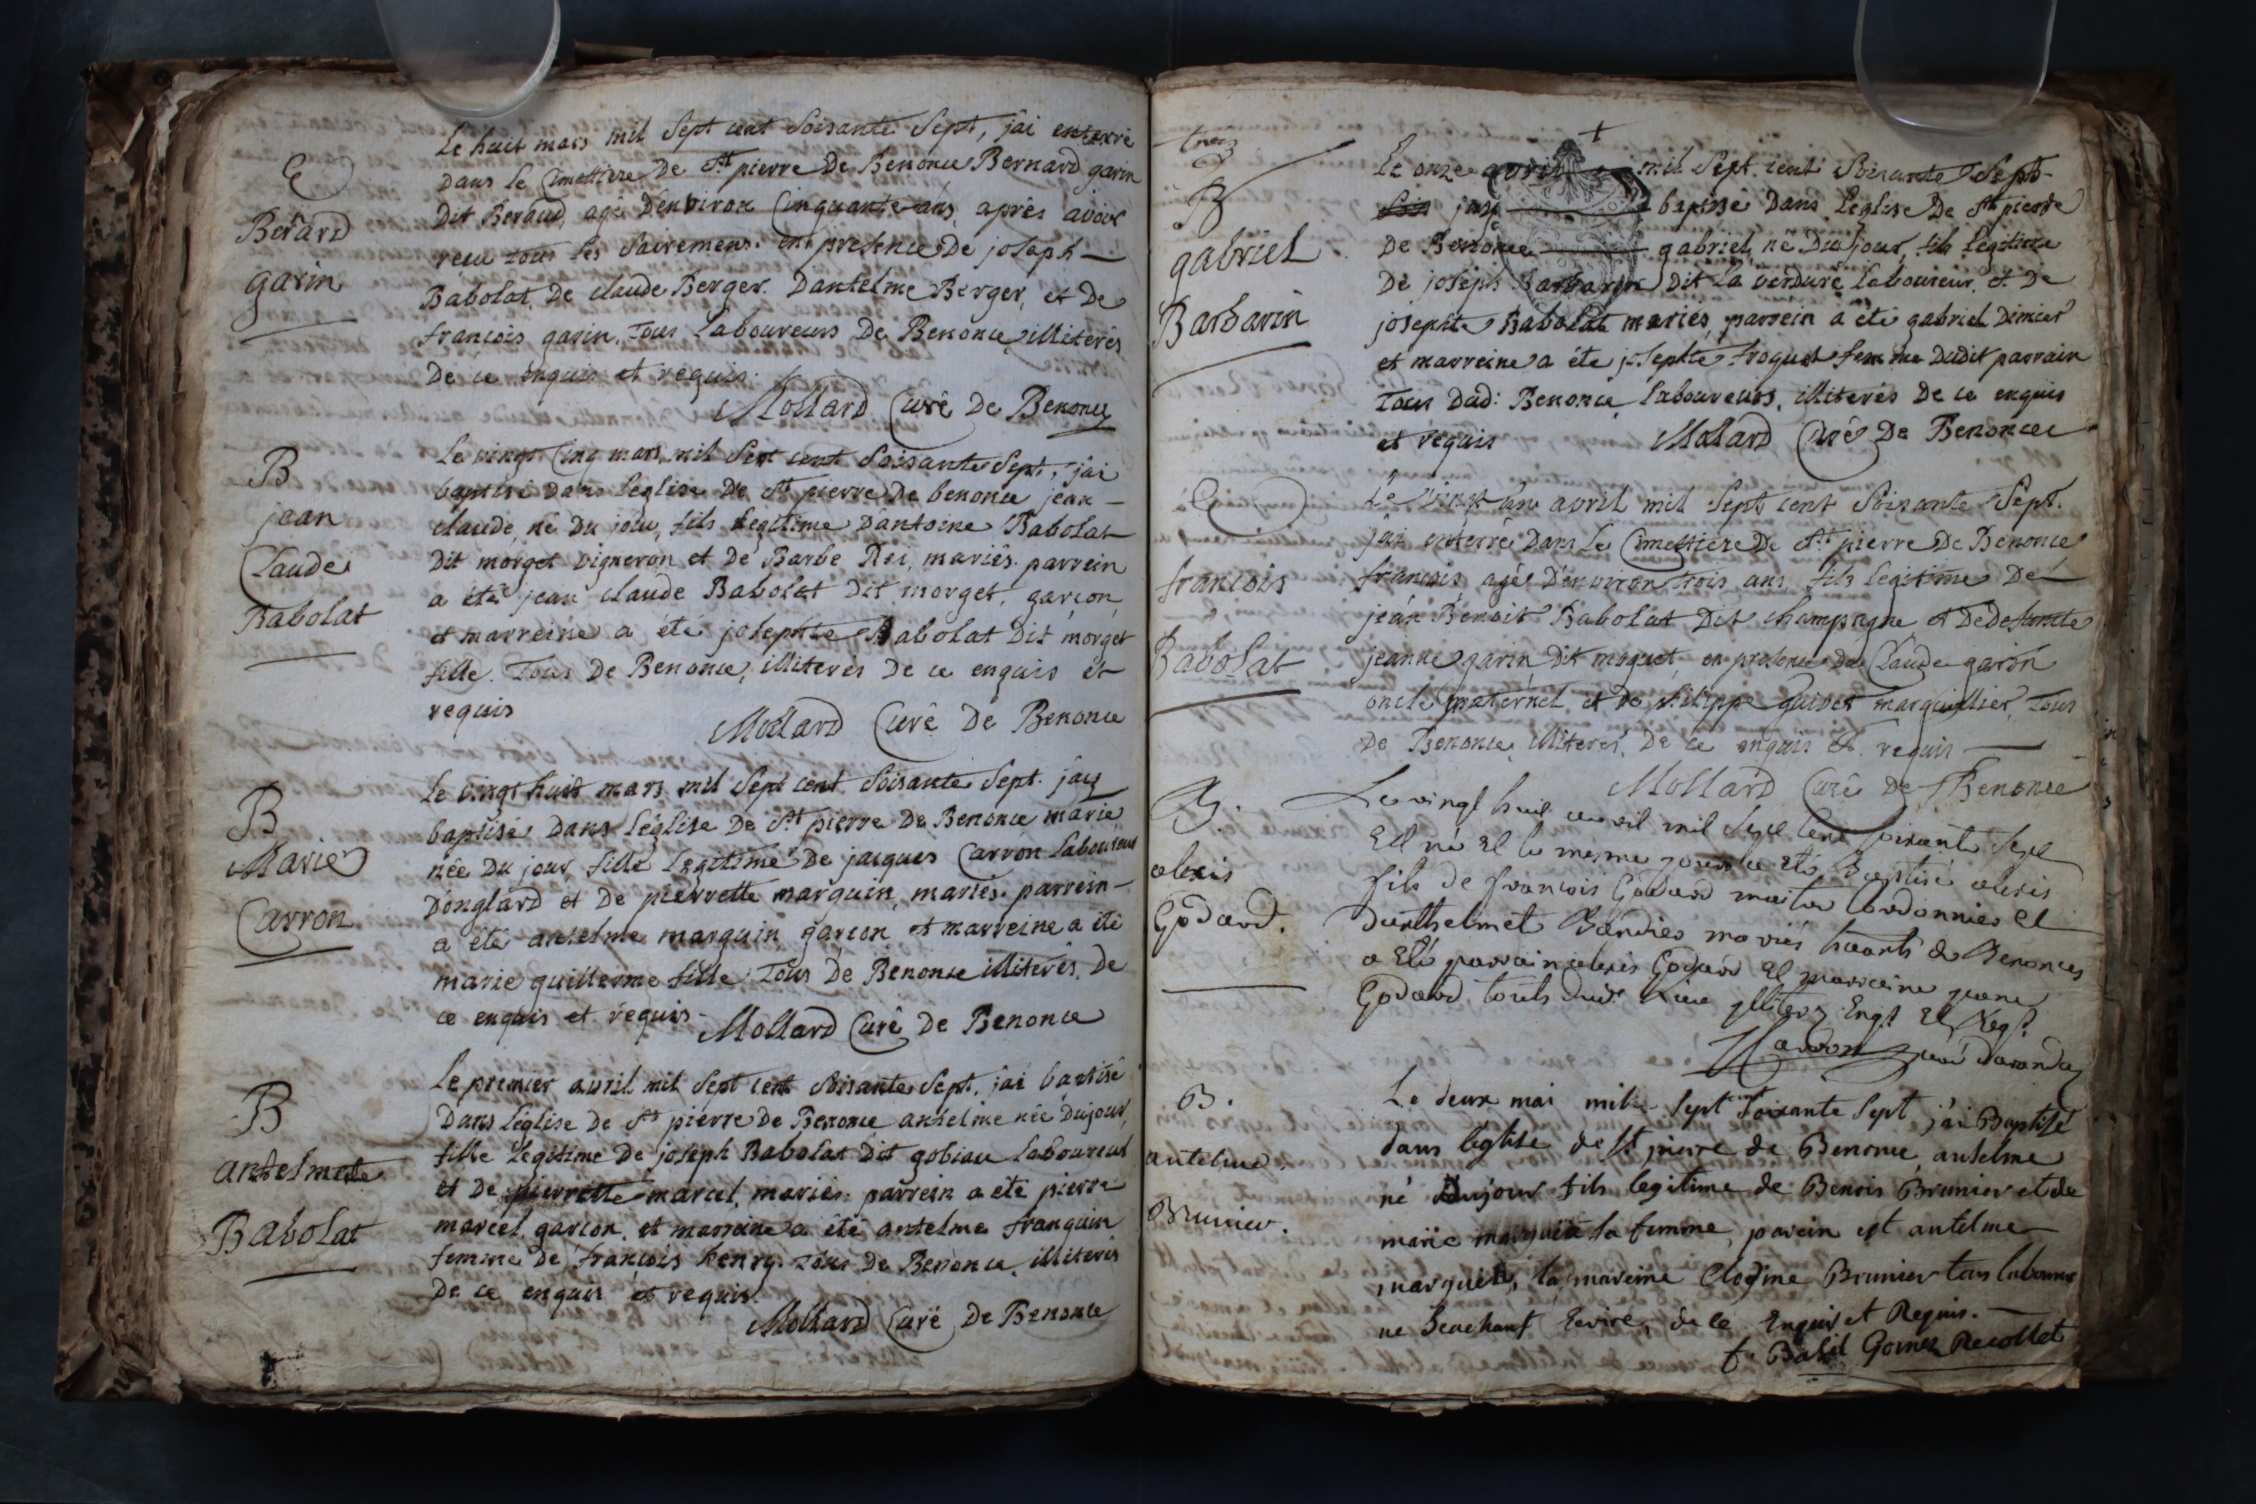 E
Berard
garin
Le huit mars mil Sept cent Soisante Sept, jai enterré
dans le Cimettiere De St pierre De Benonce Bernard garin
Dit Beraud, agé Denviron Cinquante ans, après avoir
receu tous les Sacremens. en presence De joseph
Babolat, De claude Berger. Dantelme Berger, et De
francois garin. Tous Laboureurs De Benonce illiterés
De ce enquis et requis.
Mollard Curé De Benonce
B
jean
Claude
Babolat
Le vingt Cinq mars mil Sept cent Soisante Sept, jai
baptisé dans leglise De St pierre De benonce jean
claude, né Du jour, fils legitime Dantoine Babolat
Dit morget vigneron et De Barbe Rei, mariés. parrein
a été jean claude Babolat Dit morget, garcon,
et marreine a été josephte Babolat Dit morget
fille. Tous De Benonce, illiterés de ce enquis et
requis
Mollard Curé De Benonce
B
Marie
Carron
Le vingt huit mars mil Sept cent Soisante Sept. jay
baptisé Dans léglise De St pierre De Benonce marie
née Du jour, fille Legitime De jacques Carron laboureur
Donglard et De pierrette marquin, mariés. parrein
a été antelme marquin garcon et marreine a été
marie guillerme fille. Tous De Benonce illiterés, De
ce enquis et requis.
Mollard Curé De Benonce
B
antelmete
Babolat
Le premier avril mil Sept cent Soisante Sept. jai baptisé
Dans Léglise De St pierre De Benonce antelme née Dujour,
fille Legitime De joseph Babolat Dit gobiau Laboureur
et De pierrette marcel, mariés. parrein a été pierre
marcel, garcon. et marreine a été antelme franquin
femme de françois henry. Tous De Benonce, illiterés
De ce enquis et requis.
Mollard Curé De Benonce
B
gabriel
Barbarin
Le onze avril mil Sept. cent Soisante Sept
jay baptisé Dans Leglise De St pierre
De Benonce gabriel, né Du jour, fils légitime
De joseph Barbarin Dit La verdure Laboureur, et De
josephte Babolat mariés, parrein a été gabriel Dimier
et marreine a éte josephte troquet femme Dudit parrain
Tous Dud: Benonce, laboureurs, illiterés De ce enquis
et requis
Mollard Curé De Benonce
E
francois
Babolat
Le vingt un avril mil Sept cent Soisante Sept.
jai enterré Dans Le Cimettiere De St pierre De Benonce
francois, agé D'environ trois ans, fils legitime De
jean Benoit Babolat Dit champagne et De defuncte
jeanne garin Dit moquet, en presence De Claude garin
oncle maternel, et De philippe guivet marguillier, Tous
De Benonce, illiterés, De ce enquis et requis
Mollard Curé De Benonce
B.
alexis
Godard.
Le vingt huit avril mil Sept cent soixante Sept
Est né Et le mesme jour a Eté Baptisé alexis
fils de francois Godard maitre Cordonnier et
Danthelmet mariés de Benonces
a Eté parrain alexis Godard Et marreine jeane
Godard, touts dudt Lieu yllitery Enqt Et Reqt
B.
antelme.
Brunier.
Le deux mai mil Sept cent Soixante Sept j'ai Baptisé
dans léglise de St pierre de Benonce, antelme
né Dujour fils legitime de Benois Brunier et de
marie marquin sa femme, parein est antelme
marquin, la mareine Clodine Brunier tous
ne Scachant Ecrire, de ce Enquis et Requis.
f. Basil Gomez Recollet